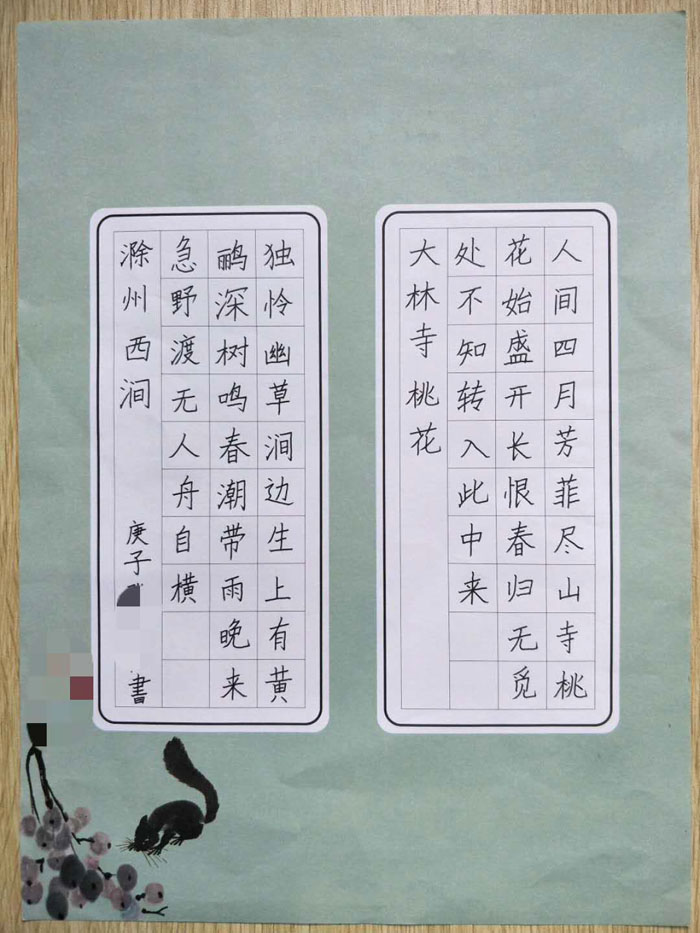 人间四月芳菲尽山寺桃
花始盛开长恨春归无觅
处不知转入此中来
大林寺桃花
独怜幽草涧边生上有黄
鹂深树鸣春潮带雨晚来
急野渡无人舟自横
滁州西涧
庚子
書